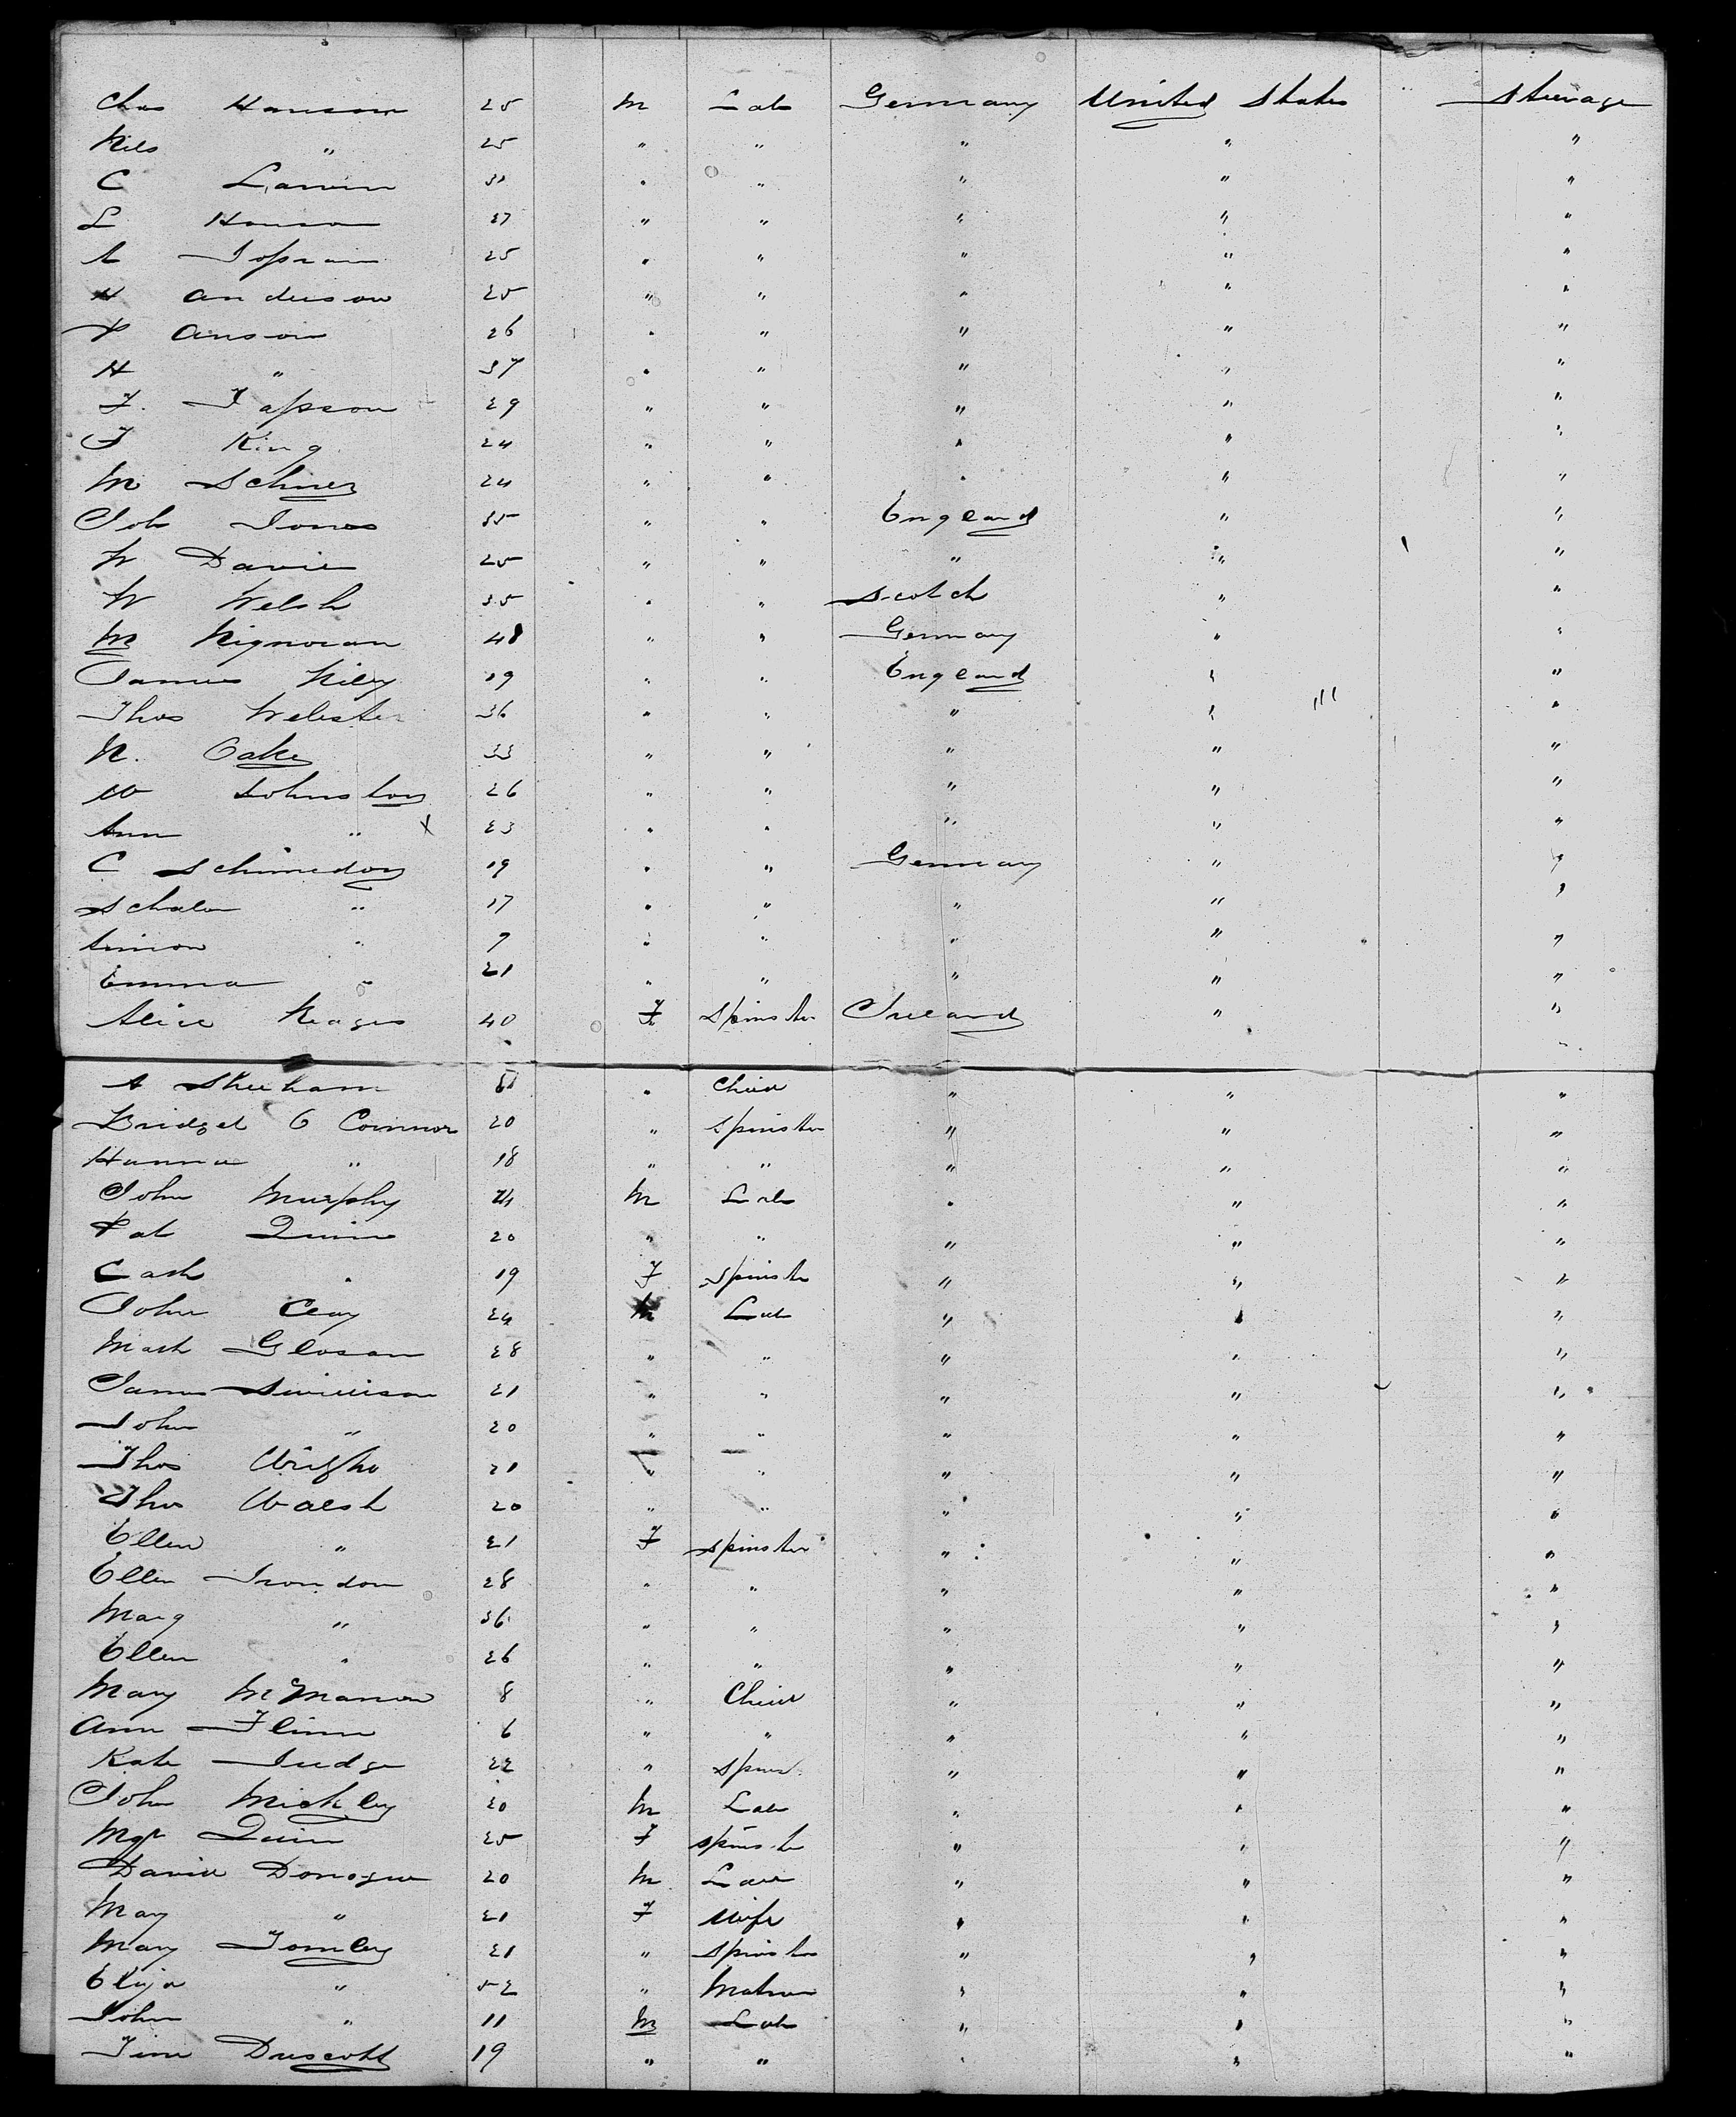 Chas Hanson 25 M Lab Germany United States Steerage
Nils " 25 " " " " "
C Larvin 31 " " " " "
L Hanson 27 " " " " "
A 25 " " " " "
H Anderson 25 " " " " "
P Anson 26 " " " " "
H " 37 " " " " "
F. Japson 29 " " " " "
F King 24 " " " " "
M 24 " " " " "
Joh Jones 35 " " England " "
W Davies 25 " " " " "
W Welsh 35 " " Scotch " "
M 48 " " Germany " "
James Riley 19 " " England " "
Thos Webster 36 " " " " "
N. Oakes 33 " " " " "
W Johnston 26 " " " " "
Ann " X 23 " " " " "
C Schimedon 19 " " Germany " "
" 17 " " " " "
Simon " 9 " " " " "
Emma " 21 " " " " "
Alice 40 F Spinster Ireland " "
A Sheeham " Child " " "
Bridget O Connor 20 " Spinster " " "
Hanna " 18 " " " " "
John Murphy 24 M Lab " " "
Pat Quinn 20 " " " " "
Cath " 19 F Spinster " " "
John Clay 24 M Lab " " "
Math Glosan 28 " " " " "
James 21 " " " " "
John " 20 " " " " "
Thos Wright 21 " " " " "
Thos Walsh 20 " " " " "
Ellen " 21 F Spinster " " "
Ellen 28 " " " " "
Marg " 36 " " " " "
Ellen " 26 " " " " "
Mary 8 " Child " " "
Ann Flinn 6 " " " " "
Kate Judge 22 " Spins " " "
John Mickley 20 M Lab " " "
Mgt Quinn 25 F Spinster " " "
David Donogue 20 M Lab " " "
Mary " 21 F Wife " " "
Mary Tomley 21 " Spinster " " "
Eliza " 52 " Matron " " "
John " 11 M Lab " " "
Tim Driscoll 19 " " " " "